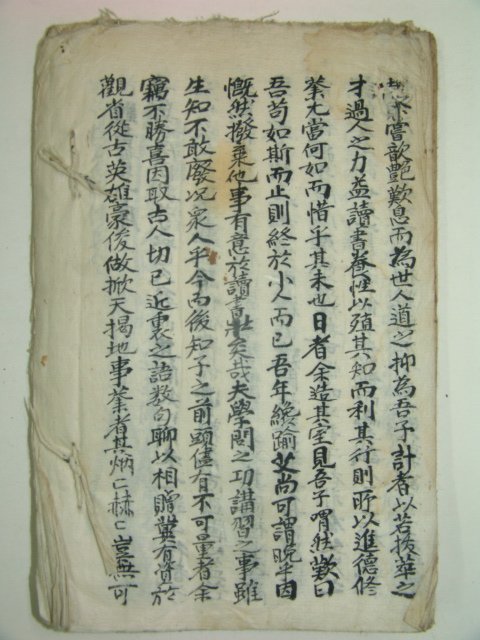 未嘗不歆艶歎息而為世人道之抑為吾子計者以若拔萃之
才過人之力益讀書養性以殖其知而利其行則所以進德修
業尤當何如而惜乎其未也日者余造其室見吾子喟然歎曰
吾苟如斯而止則終於小人而已吾年纔踰艾尚可謂晩乎因
慨然撥棄他事有意於讀書壯矣哉夫學問之功講習之事雖
生知不敢廢况衆人乎今而後知子之前頭儘有不可量者余
竊不勝喜因取古人切已近裏之語数句聊以相贈冀有資於
觀省從古英雄豪俊做掀天揭地事業者其炳〻赫〻豈無可